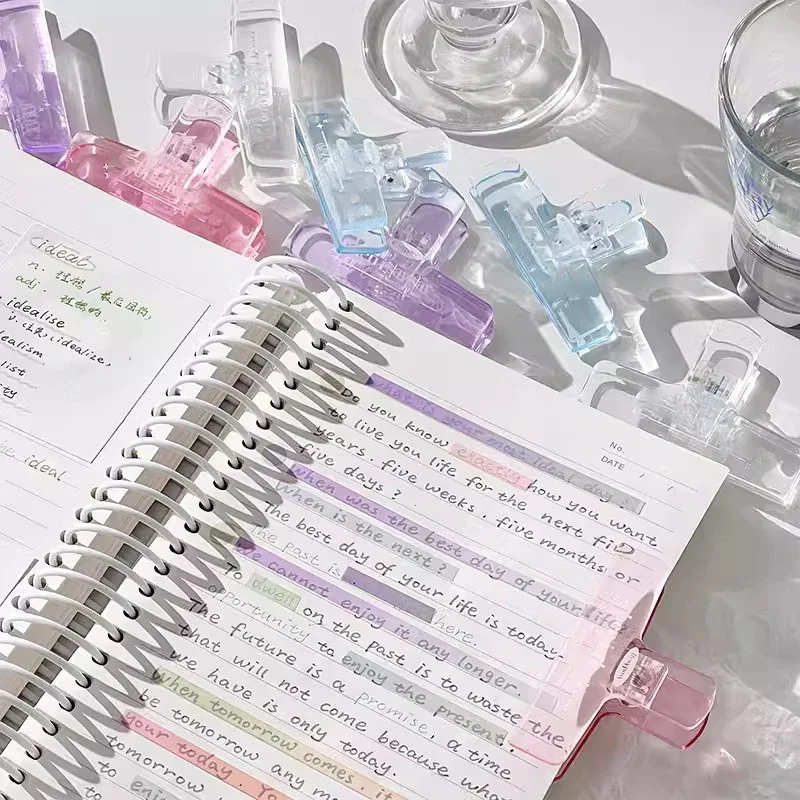 ideal
n. 理想
adj. 理想的
idealise
idealize,
idealism
list
be ideal
No.
DATE / /
What is your most ideal day?
Do you know exactly how you want
to live you life for the next fi
years. five weeks. five months or
five days?
When was the best day of your life?
When is the next?
The best day of your life is today.
The past is here.
We cannot enjoy it any longer.
To dwell on the past is to waste the
opportunity to enjoy the present.
The future is a promise, a time
that will not come because what
we have is only today.
When tomorrow comes. it
be tomorrow any mo
your today. Yo
tomorrow
to enjo